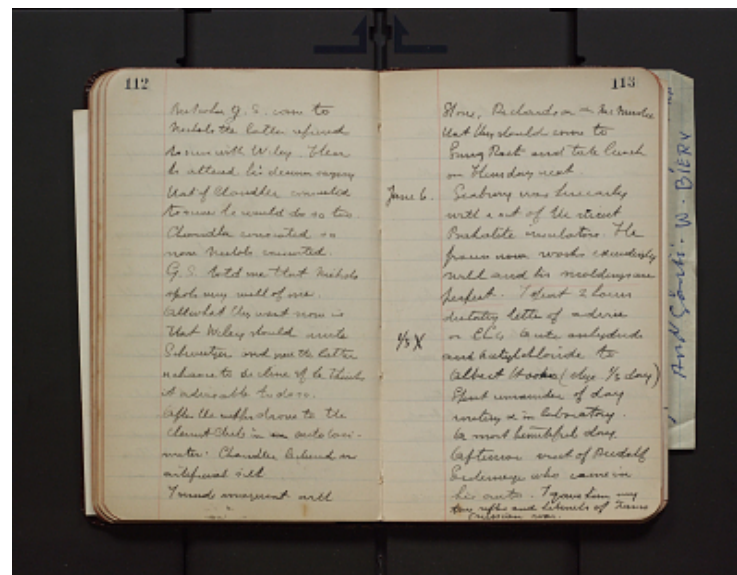 112
G. S. came to
Nichols the latter refused
to serve with Wiley. Then
he altered his decision saying
that if Chandler consented
to serve he would do so too.
Chandler consented so
now Nichols consented.
G. S. told me that Nichols
spoke very well of me.
All what they want now is
that Wiley should write
Schweitzer and give the latter
a chance to decline if he thinks
it advisable to do so.
After the drove to the
Club in an auto taxi-
meter. Chandler believed in
artificial silk
I must
113
Stone, Richardson
that they should come to
Snug Rock and take lunch
on Thursday next.
June 6. Seabury was here early
with a set of the
Bakalite insulators. He
now works exceedingly
well and his moldings are
perfect. I spent 2 hours
dictating letter of advice
1/3 X on anhydride
and Acetylchloride to
Albert (chge. 1/3 day)
Spent remainder of day
in laboratory.
A most beautiful day
Afternoon visit of Rudolf
who came in
his auto. I gave him my
rifles and of Franco
Prussian war.
W. BIERY